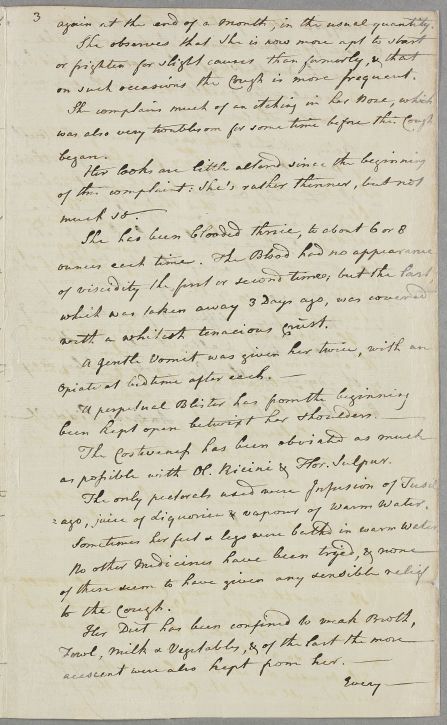 3
again at the end of a month, in the usual quantity.
She observes that she is now more apt to start
or frighten for slight causes, than formerly, & that
on such occasions the Cough is more frequent.
She complains much of an itching in her Nose, which
was also very troublesom for some time before the Cough
began.
Her looks are little altered since the beginning
of the complaint: She's rather thinner, but not
much so —
She has been blooded thrice, to about 6 or 8
ounces each time. The Blood had no appearance
of viscidity the first or second times; but the last,
which was taken away 3 Days ago, was covered
with a whitish tenacious crust.
A gentle Vomit was given her twice, with an
Opiate at bedtime after each. —
A perpetual Blister has from the beginning
been kept open betwixt her shoulders. —
The Costiveness has been obviated as much
as possible with Ol. Ricini & Flor. Sulpur.
The only pectorals used were Infusion of Tusil
=ago, juice of liquorice & vapour of warm Water.
Sometimes her feet & legs were bathd in warm Water
No other Medicines have been tryed, & none
of these seem to have given any sensible relief
to the Cough.
Her Diet has been confined to weak Broth,
Fowl, Milk & Vegetables, & of the last the more
acescent were also kept from her. —
Every —